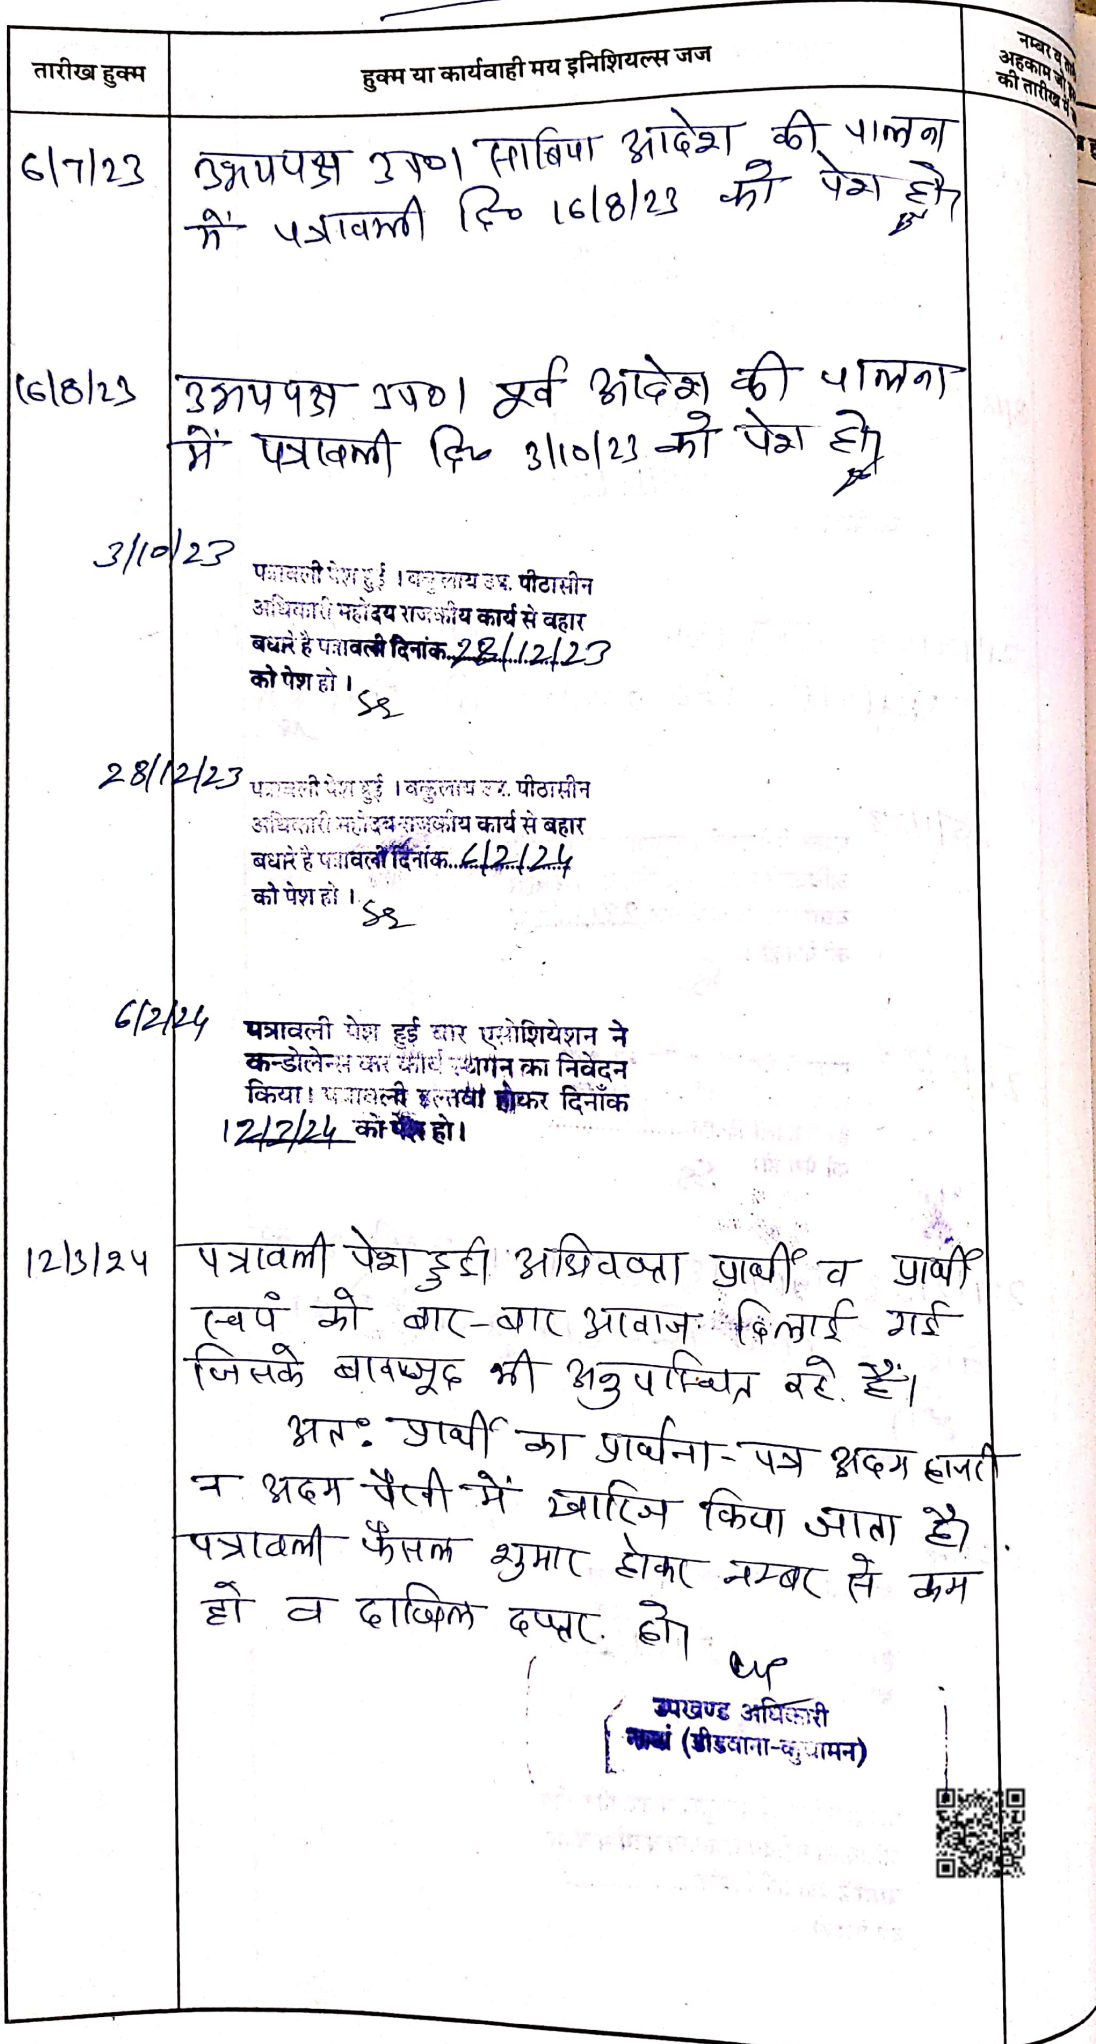 तारीख हुक्म
हुक्म या कार्यवाही मय इनिशियल्स जज
नम्बर व
अहकाम जो
की तारीख में
6/7/23
उभयपक्ष उप०। साबिया आदेश की पालना
में पत्रावली दि० 16/8/23 को पेश हो।
16/8/23
उभयपक्ष उप०। पूर्व आदेश की पालना
में पत्रावली दि० 3/10/23 को पेश हो।
3/10/23
पत्रावली पेश हुई । वकुलाय उप. पीठासीन
अधिकारी महोदय राजकीय कार्य से बहार
बधारे है पत्रावली दिनांक 28/12/23
को पेश हो ।
28/12/23
पत्रावली पेश हुई । वकुलाय उप. पीठासीन
अधिकारी महोदय राजकीय कार्य से बहार
बधारे है पत्रावली दिनांक 6/2/24
को पेश हो ।
6/2/24
पत्रावली पेश हुई बार एसोशियेशन ने
कन्डोलेन्स कर कार्य स्थगन का निवेदन
किया। पत्रावली इल्तवा होकर दिनाँक
को पेश हो।
12/3/24
पत्रावली पेश हुई। अधिवक्ता प्रार्थी व प्रार्थी
स्वयं को बार-बार आवाज दिलाई गई
जिसके बावजूद भी अनुपस्थित रहे हैं।
अतः प्रार्थी का प्रार्थना-पत्र अदम हाजरी
व अदम पैरवी में खारिज किया जाता है।
पत्रावली फैसल शुमार होकर नम्बर से कम
हो व दाखिल दफ्तर हो।
उपखण्ड अधिकारी
नावां (डीडवाना-कुचामन)